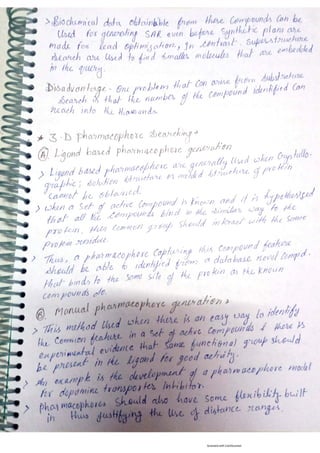 > Biochemical data obtainable from these compounds can be
used for generating SAR even before synthetic plans are
made for lead optimization, In contrast, superstructure
search are used to find smaller molecules that are embedded
in the query.
Disadvantage - One problem that can arise from substructure
search is that the number of the compound identified can
reach into the thousands.
* 3-D Pharmacophore Searching →
(A) Ligand based pharmacophore generation
> Ligand based pharmacophore are generally used when crystallo-
graphic, solution structure or model structure of protein
cannot be obtained.
> When a set of active compound is known and it is hypothesized
that all the compounds bind in the similar way to the
protein, then common group should interact with the same
protein residue.
> Thus, a pharmacophore capturing this compound feature
should be able to identified from a database novel compd.
that binds to the same site of the protein as the known
compounds do.
(B) Manual pharmacophore generation →
> This method used when there is an easy way to identify
the common feature in a set of active compounds & there is
experimental evidence that same functional group should
be present in the ligand for good activity.
> An example is the development of a pharmacophore model
for dopamine transporter inhibitor.
> Pharmacophores should also have some flexibility built
in thus justifying the use of distance ranges.
Scanned with CamScanner